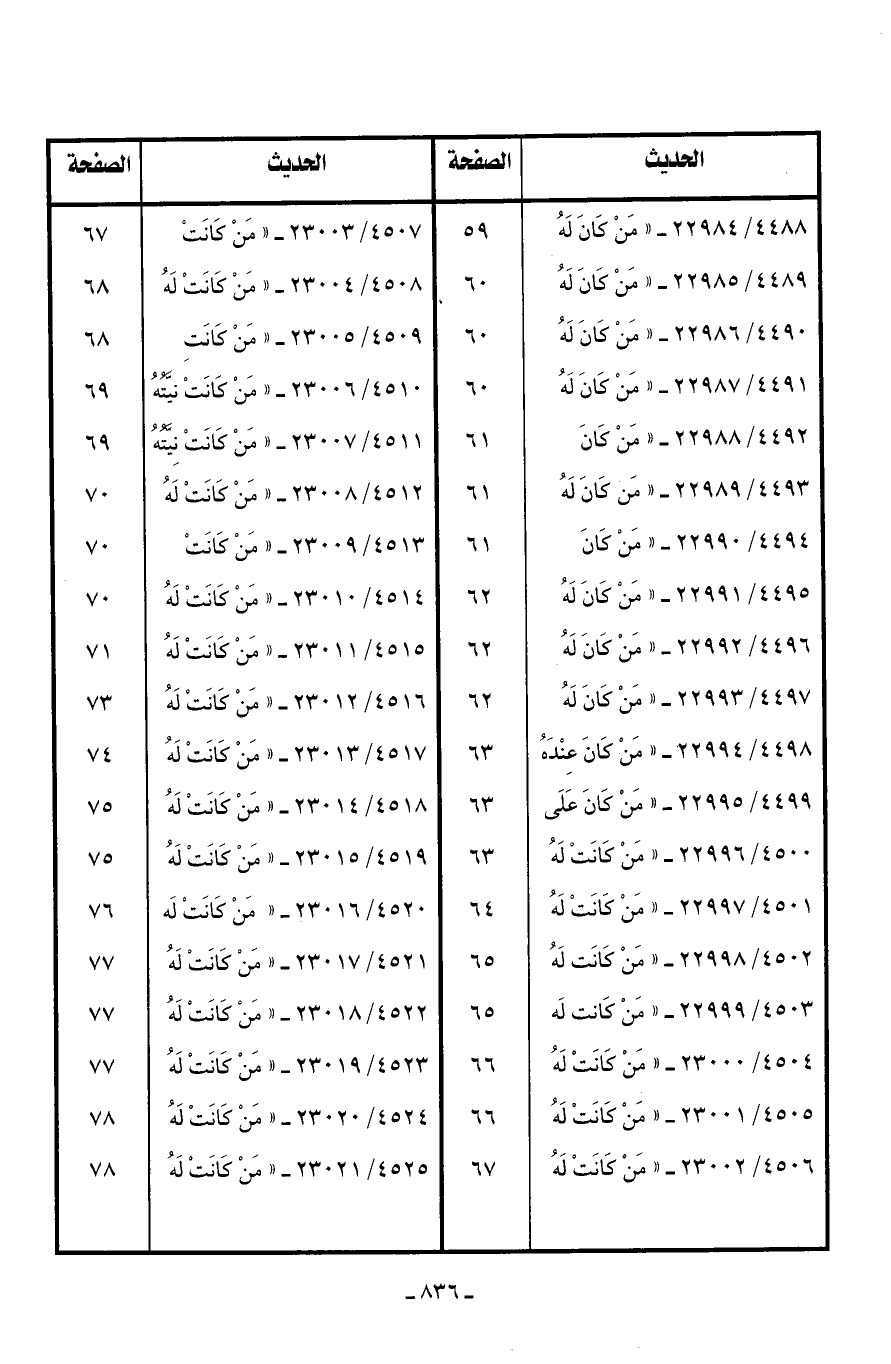 الحديث الصفحة الحديث الصفحة
٢٢٩٨٤/٤٤٨٨ ـ « مَنْ كَانَ لَهُ ٥٩ ٢٣٠٠٣/٤٥٠٧ ـ « مَنْ كَانَتْ ٦٧
٢٢٩٨٥/٤٤٨٩ ـ « مَنْ كَانَ لَهُ ٦٠ ٢٣٠٠٤/٤٥٠٨ ـ « مَنْ كَانَتْ لَهُ ٦٨
٢٢٩٨٦/٤٤٩٠ ـ « مَنْ كَانَ لَهُ ٦٠ ٢٣٠٠٥/٤٥٠٩ ـ « مَنْ كَانَتِ ٦٨
٢٢٩٨٧/٤٤٩١ ـ « مَنْ كَانَ لَهُ ٦٠ ٢٣٠٠٦/٤٥١٠ ـ « مَنْ كَانَتْ نِيَّتُهُ ٦٩
٢٢٩٨٨/٤٤٩٢ ـ « مَنْ كَانَ ٦١ ٢٣٠٠٧/٤٥١١ ـ « مَنْ كَانَتْ نِيَّتُهُ ٦٩
٢٢٩٨٩/٤٤٩٣ ـ « مَن كَانَ لَهُ ٦١ ٢٣٠٠٨/٤٥١٢ ـ « مَنْ كَانَتْ لَهُ ٧٠
٢٢٩٩٠/٤٤٩٤ ـ « مَنْ كَانَ ٦١ ٢٣٠٠٩/٤٥١٣ ـ « مَنْ كَانَتْ ٧٠
٢٢٩٩١/٤٤٩٥ ـ « مَنْ كَانَ لَهُ ٦٢ ٢٣٠١٠/٤٥١٤ ـ « مَنْ كَانَتْ لَهُ ٧٠
٢٢٩٩٢/٤٤٩٦ ـ « مَنْ كَانَ لَهُ ٦٢ ٢٣٠١١/٤٥١٥ ـ « مَنْ كَانَتْ لَهُ ٧١
٢٢٩٩٣/٤٤٩٧ ـ « مَنْ كَانَ لَهُ ٦٢ ٢٣٠١٢/٤٥١٦ ـ « مَنْ كَانَتْ لَهُ ٧٣
٢٢٩٩٤/٤٤٩٨ ـ « مَنْ كَانَ عِنْدَهُ ٦٣ ٢٣٠١٣/٤٥١٧ ـ « مَنْ كَانَتْ لَهُ ٧٤
٢٢٩٩٥/٤٤٩٩ ـ « مَنْ كَانَ عَلَى ٦٣ ٢٣٠١٤/٤٥١٨ ـ « مَنْ كَانَتْ لَهُ ٧٥
٢٢٩٩٦/٤٥٠٠ ـ « مَنْ كَانَتْ لَهُ ٦٣ ٢٣٠١٥/٤٥١٩ ـ « مَنْ كَانَتْ لَهُ ٧٥
٢٢٩٩٧/٤٥٠١ ـ « مَنْ كَانَتْ لَهُ ٦٤ ٢٣٠١٦/٤٥٢٠ ـ « مَنْ كَانَتْ لَه ٧٦
٢٢٩٩٨/٤٥٠٢ ـ « مَنْ كَانَت لَهُ ٦٥ ٢٣٠١٧/٤٥٢١ ـ « مَنْ كَانَتْ لَهُ ٧٧
٢٢٩٩٩/٤٥٠٣ ـ « مَنْ كَانت لَه ٦٥ ٢٣٠١٨/٤٥٢٢ ـ « مَنْ كَانَتْ لَهُ ٧٧
٢٣٠٠٠/٤٥٠٤ ـ « مَنْ كَانَتْ لَهُ ٦٦ ٢٣٠١٩/٤٥٢٣ ـ « مَنْ كَانَتْ لَهُ ٧٧
٢٣٠٠١/٤٥٠٥ ـ « مَنْ كَانَتْ لَهُ ٦٦ ٢٣٠٢٠/٤٥٢٤ ـ « مَنْ كَانَتْ لَهُ ٧٨
٢٣٠٠٢/٤٥٠٦ ـ « مَنْ كَانَتْ لَهُ ٦٧ ٢٣٠٢١/٤٥٢٥ ـ « مَنْ كَانَتْ لَهُ ٧٨
ـ ٨٣٦ ـ